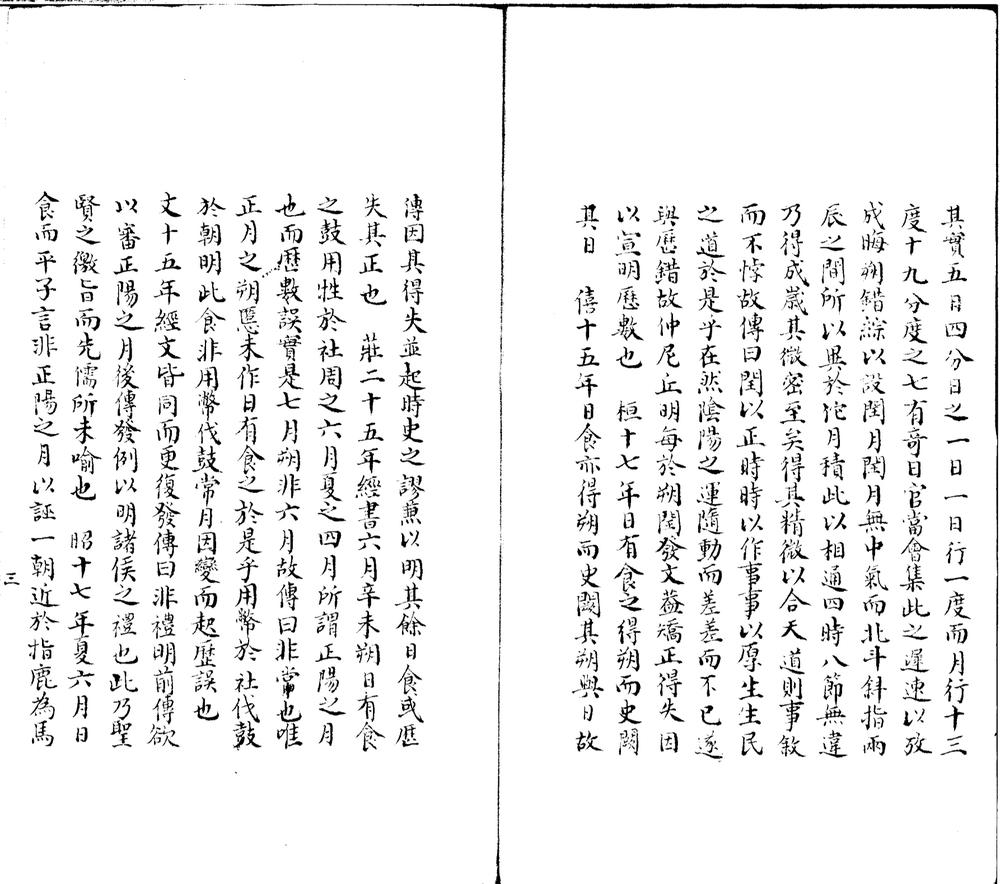 其實五日四分日之一日一日行一度而月行十三
度十九分度之七有奇日官當會集此之遲速以攷
成晦朔錯綜以設閏月閏月無中氣而北斗斜指兩
辰之間所以異於佗月積此以相通四時八節無違
乃得成嵗其微密至矣得其精微以合天道則事敘
而不悖故傳曰閏以正時時以作事事以厚生生民
之道於是乎在然陰陽之運隨動而差差而不已遂
與曆錯故仲尼丘明每於朔閏發文葢矯正得失因
以宣明曆數也 桓十七年日有食之得朔而史闕
其日 僖十五年日食亦得朔而史闕其朔與日故
傳因其得失並起時史之謬兼以明其餘日食或歷
失其正也 莊二十五年經書六月辛未朔日有食
之鼓用牲於社周之六月夏之四月所謂正陽之月
也而曆數誤實是七月朔非六月故傳曰非常也唯
正月之朔慝未作日有食之於是乎用幣於社伐鼓
於朝明此食非用幣伐鼓常月因變而起歷誤也
文十五年經文皆同而更復發傳曰非禮明前傳欲
以審正陽之月後傳發例以明諸侯之禮也此乃聖
賢之微旨而先儒所未喻也 昭十七年夏六月日
食而平子言非正陽之月以誣一朝近於指鹿為馬
三